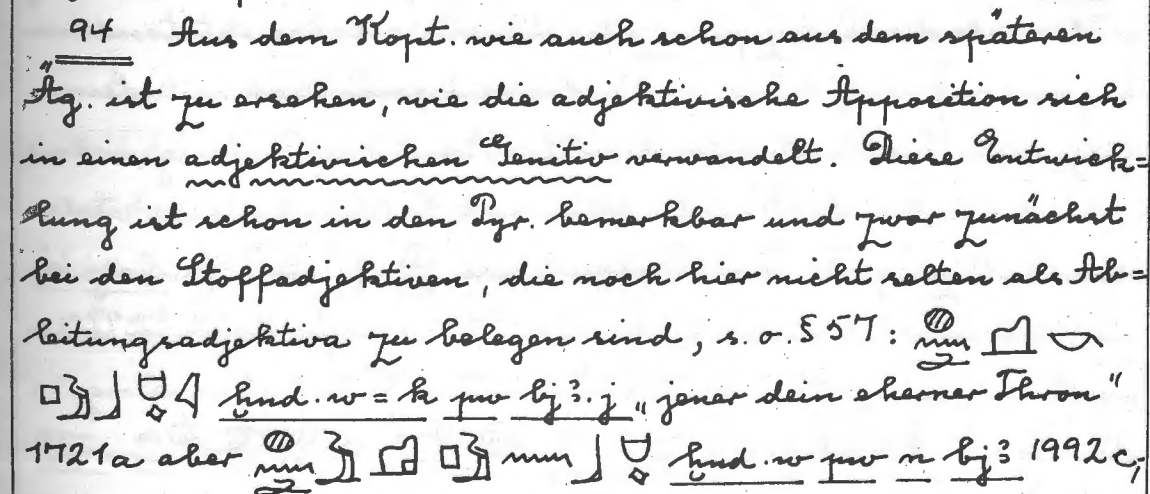 94 Aus dem Kopt. wie auch schon aus dem späteren
Äg. ist zu ersehen, wie die adjektivische Apposition sich
in einen adjektivischen Genitiv verwandelt. Diese Entwick=
lung ist schon in den Pyr. bemerkbar und zwar zunächst
bei den Stoffadjektiven, die noch hier nicht selten als Ab=
leitungsadjektiva zu belegen sind, s. o. § 57:
ḫnd.w=k pw bjꜣ.j „jener dein eherner Thron“
1721a aber ḫnd.w pw n bjꜣ 1992c,